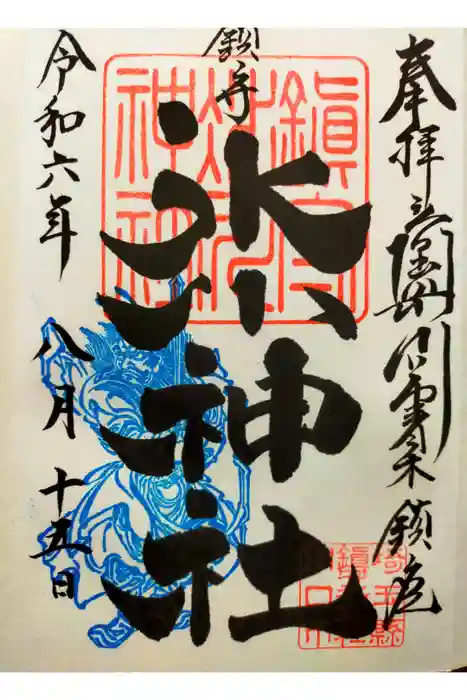 奉拝
鎮座
鎮守
氷川神社
令和六年 八月 十五日
鎮守
氷川
神社
埼玉縣